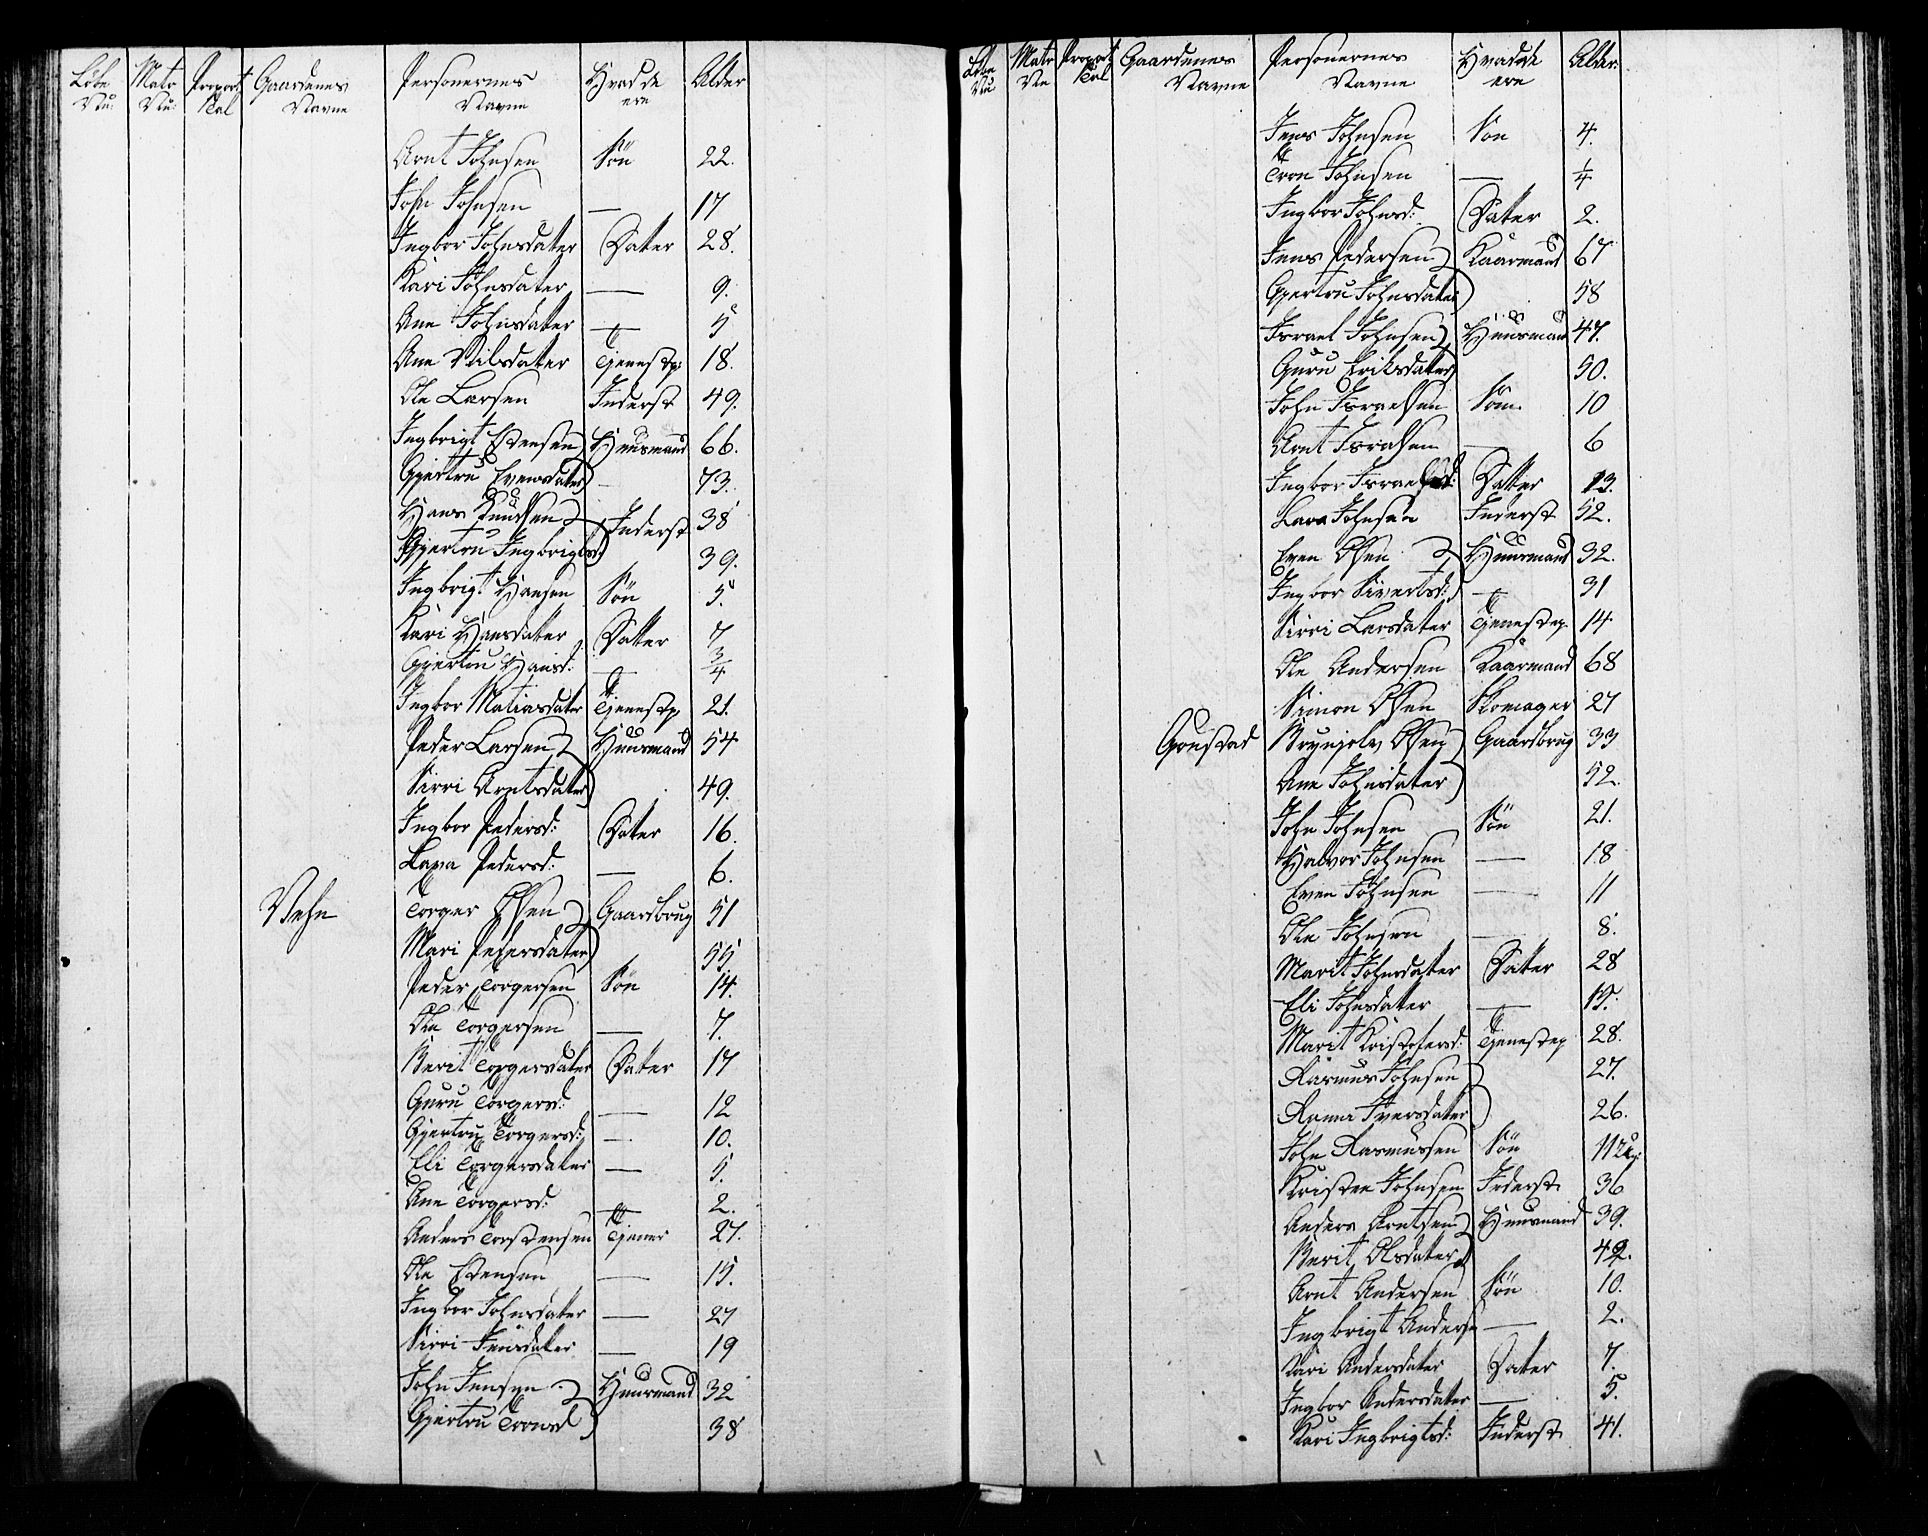 Löbe Nu: Matr Nu: Proport Tal Gaardenes Navne Personernes Navne Hvad de ere Alder
Arnt Johnsen Sön 22.
John Johnsen — 17
Ingbor Johnsdater Dater 28.
Kari Johnsdater — 9.
Ane Johnsdater — 5
Ane Nilsdater Tjenestp: 18.
Ole Larsen Inderst 49.
Ingbrigt Estensen Huusmand 66.
Gjertru Evensdater — 73.
Hans Knudsen Inderst 38
Gjertru Ingbrigtsd: 39.
Ingbrigt Hansen Sön 5.
Kari Hansdater Datter 7
Gjertru Hansd: — 3/4
Ingbor Matiasdater Tjenestp 21.
Peder Larsen Huusmand 54
Sirri Arntsdater 49.
Ingbor Pedersd: Dater 16.
Lava Pedersd: — 6.
Vehn Torger Olsen Gaardbrug 51
Mari Pedersdater 55
Peder Torgersen Sön 14.
Ole Torgersen — 7.
Berit Torgersdater Dater 17
Guru Torgersd: — 12
Gjertru Torgersd: — 10.
Eli Torgersdater — 5.
Ane Torgersd: — 2.
Anders Torstensen Tjener 27.
Ole Estensen — 15.
Ingbor Johnsdater — 27
Sirri Jensdater — 19
John Jensen Huusmand 32
Gjertru Tronsd 38
Löbe Nu Matr Nu Proport Tal Gaardenes Navne Personernes Navne Hvad de ere Alder.
Jens Johnsen Son 4.
Tron Johnsen — 1/4
Ingbor Johnsd: Dater 2.
Jens Pedersen Kaarmand 67
Gjertru Johnsdater 58
Israel Johnsen Huusmand 47.
Guru Eriksdater 50.
John Israelsen Sön. 10
Arnt Israelsen — 6
Ingbor Israelsd: Datter 13.
Lava Johnsen Inderst 52.
Even Olsen Huusmand 32.
Ingbor Sivertsd: — 31
Sirri Larsdater Tjenestep. 14
Ole Andersen Kaarmand 68
Simon Olsen Skomager 27
Goustad Brynjolv Olsen Gaardbrug 33
Ane Johnsdater 52.
John Johnsen Sön 21.
Halvor Johnsen — 18
Even Johnsen — 11
Ole Johnsen — 8.
Marit Johnsdater Dater 28
Eli Johnsdater — 15.
Marit Kristofersd: Tjenestep 28.
Rasmus Johnsen 27.
Ranna Iversdater 26.
John Rasmussen Sön 11 Ug:
Kristen Johnsen Inderst. 36
Anders Arntsen Huusmand 39.
Berit Olsdater 42.
Arnt Andersen Sön 10.
Ingbrigt Anderse — 2.
Kari Andersdater Dater 7.
Ingbor Andersdater — 5.
Kari Ingbrigtsd: Inderst 41.